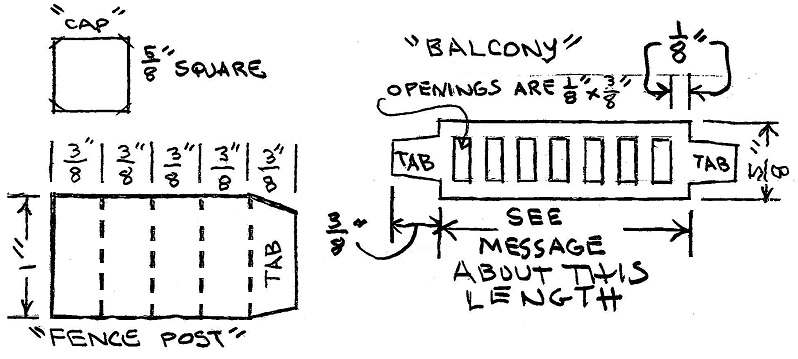 "CAP"
5/8" SQUARE
3/8" 3/8" 3/8" 3/8" 3/8"
1"
TAB
"FENCE POST"
"BALCONY"
1/8"
OPENINGS ARE 1/8" x 3/8"
TAB
TAB
5/8"
3/8"
SEE
MESSAGE
ABOUT THIS
LENGTH